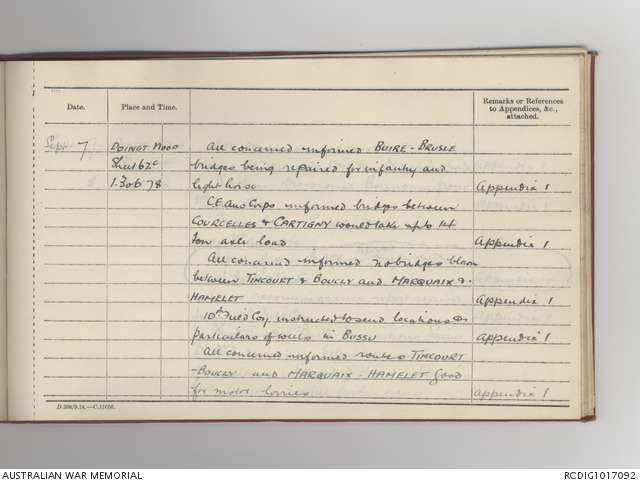 Date.
Place and Time.
Remarks or References
to Appendices, &c.,
attached.
Sept 7 DOINGT 1700 All concerned informed BUIRE - BRUSLE
Sheet 62c bridges being repaired for infantry and
1.36b 78 light horse Appendix 1
CE Aus Corps informed bridges between
COURCELLES & CARTIGNY would take up to 14
ton axle load Appendix 1
All concerned informed no bridges blown
between TINCOURT & BOUCLY and MARQUAIX &
HAMELET Appendix 1
10th Field Coy instructed to send locations &
particulars of wells in BUSSU Appendix 1
All concerned informed routes TINCOURT
- BOUCLY and MARQUAIX - HAMELET good
for motor lorries Appendix 1
AUSTRALIAN WAR MEMORIAL
RCDIG1017092